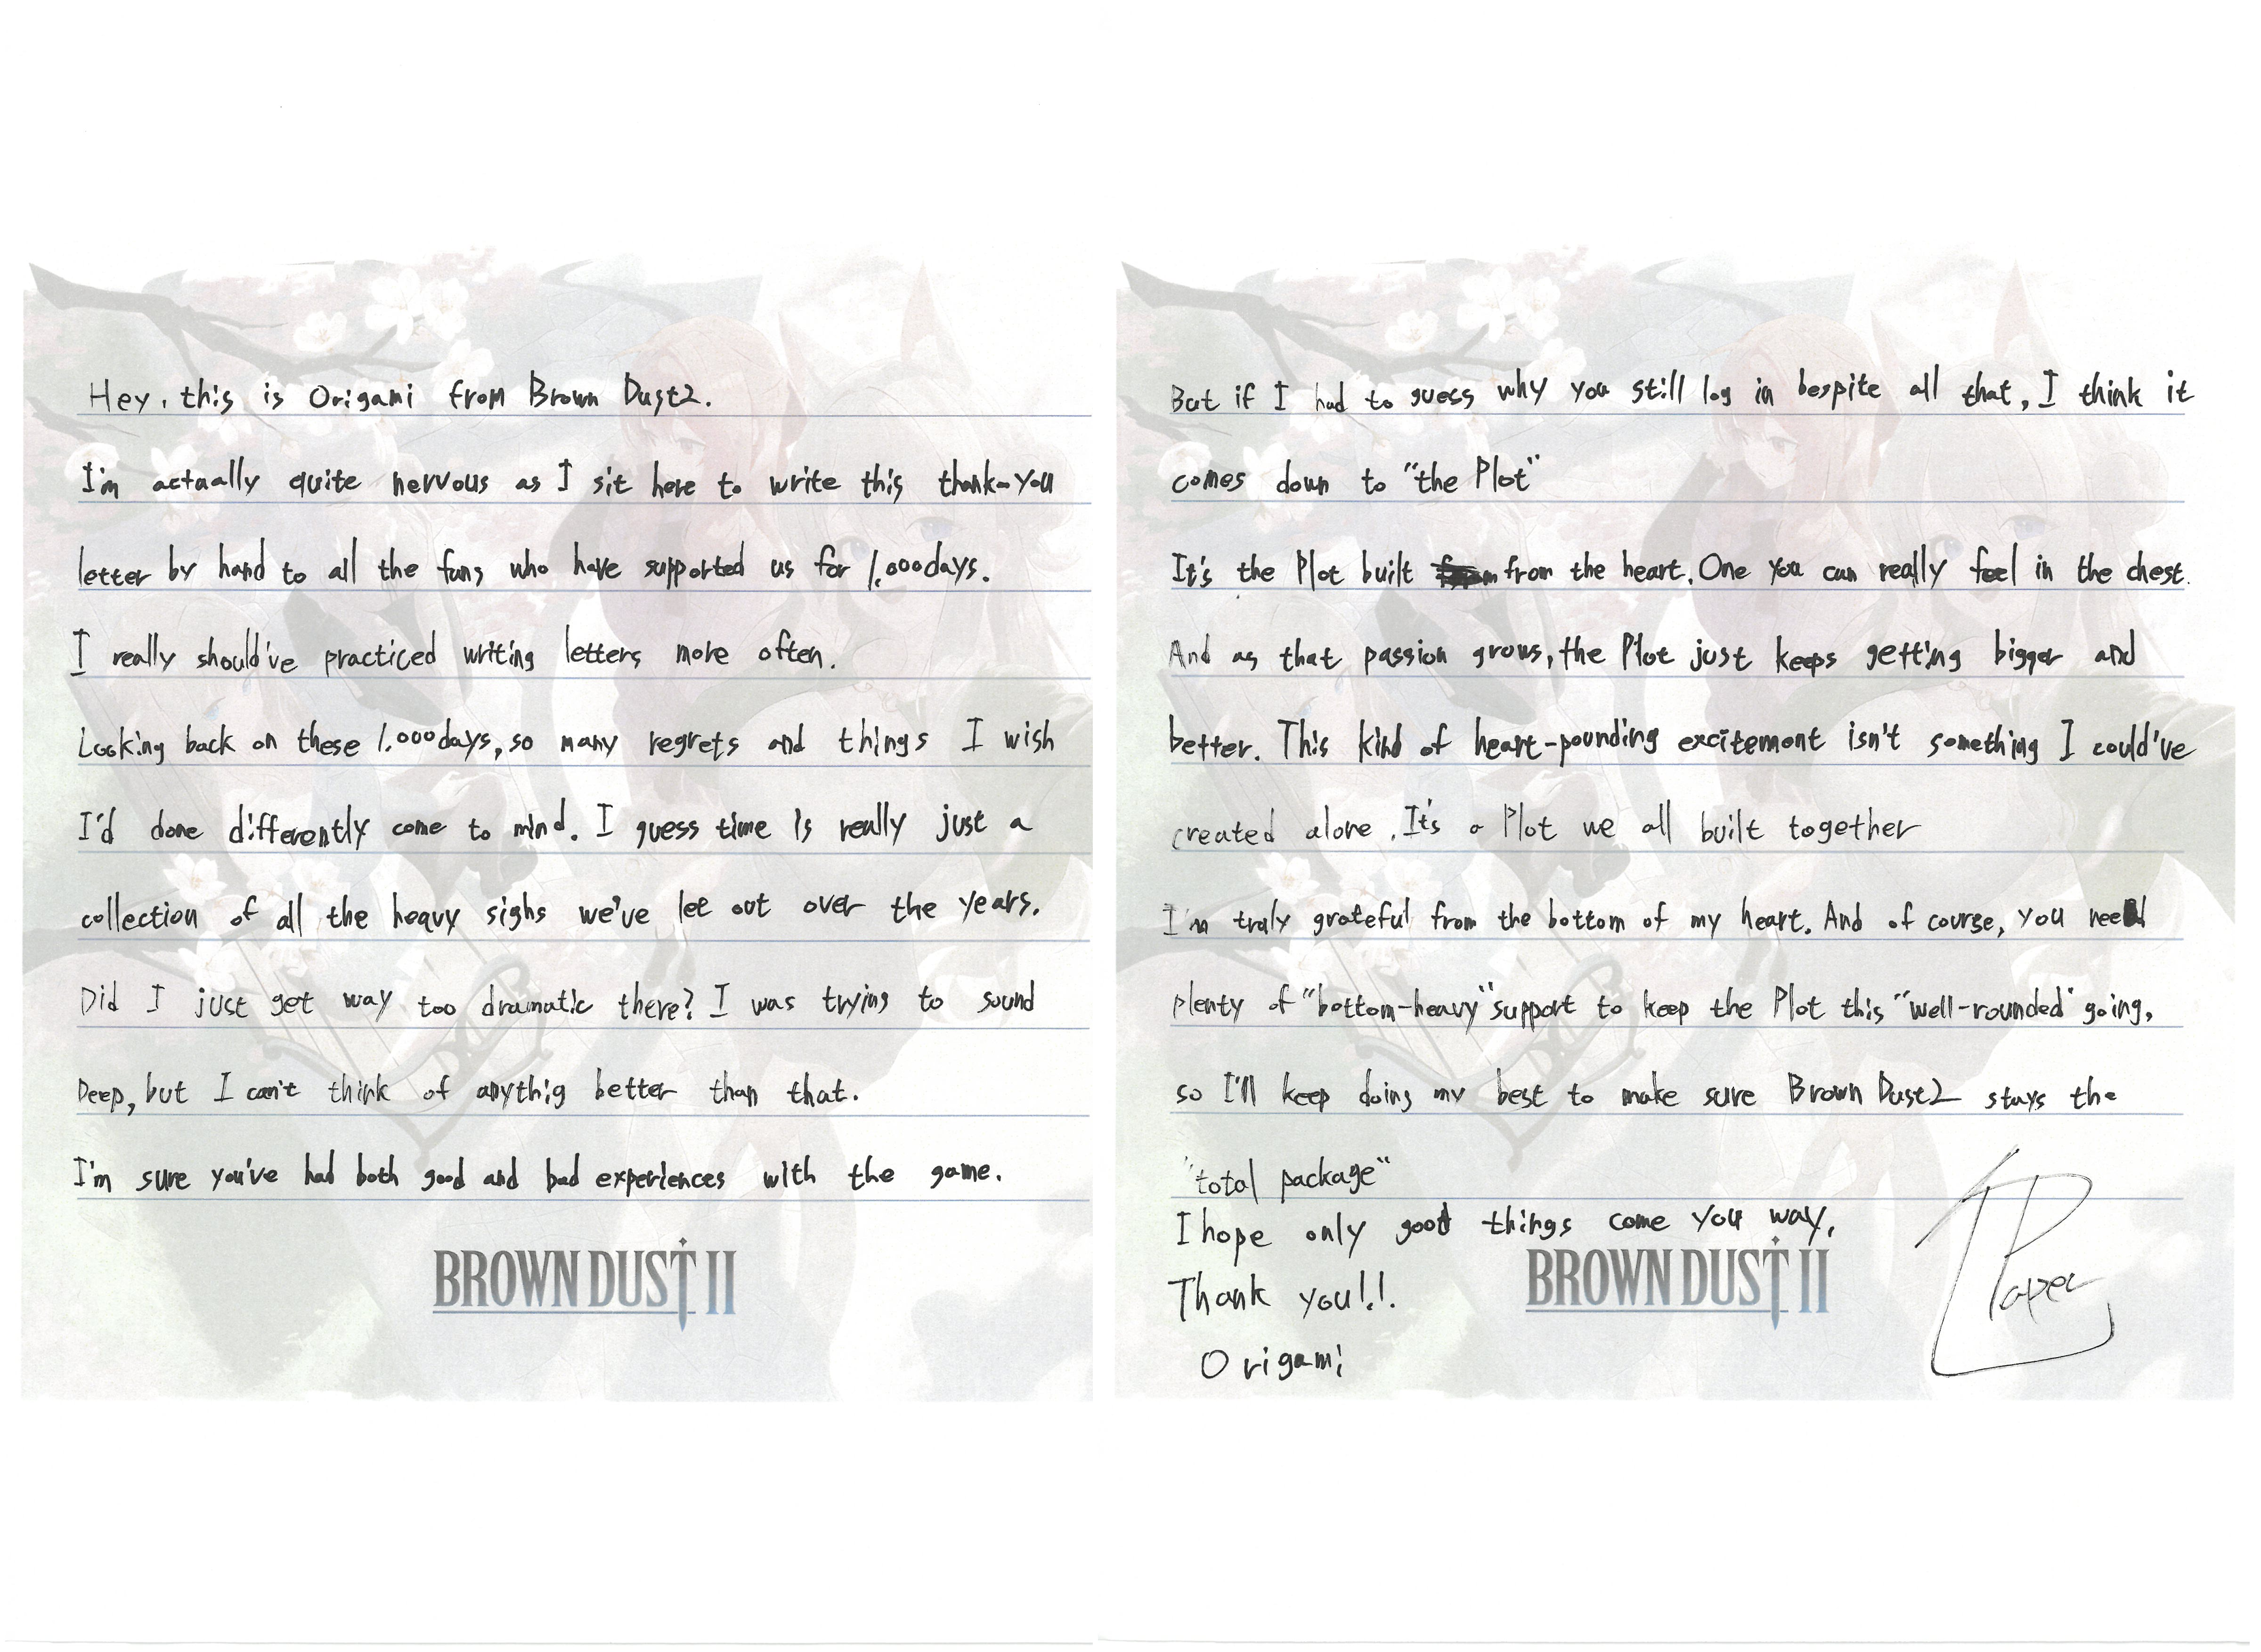 Hey, this is Origami from Brown Dust2.
I'm actually quite nervous as I sit here to write this thank-you
letter by hand to all the fans who have supported us for 1,000days.
I really should've practiced writing letters more often.
Looking back on these 1,000days, so many regrets and things I wish
I'd done differently come to mind. I guess time is really just a
collection of all the heavy sighs we've let out over the years.
Did I just get way too dramatic there? I was trying to sound
Deep, but I can't think of anythig better than that.
I'm sure you've had both good and bad experiences with the game.
BROWN DUST II
But if I had to guess why you still log in bespite all that, I think it
comes down to "the Plot"
It's the Plot built from the heart. One you can really feel in the chest.
And as that passion grows, the Plot just keeps getting bigger and
better. This kind of heart-pounding excitement isn't something I could've
created alone. It's a Plot we all built together
I'm truly grateful from the bottom of my heart. And of course, you need
plenty of "bottom-heavy" support to keep the Plot this "well-rounded" going,
so I'll keep doing my best to make sure Brown Dust2 stays the
"total package"
I hope only good things come you way.
Thank you!.!.
Origami
BROWN DUST II
Paper